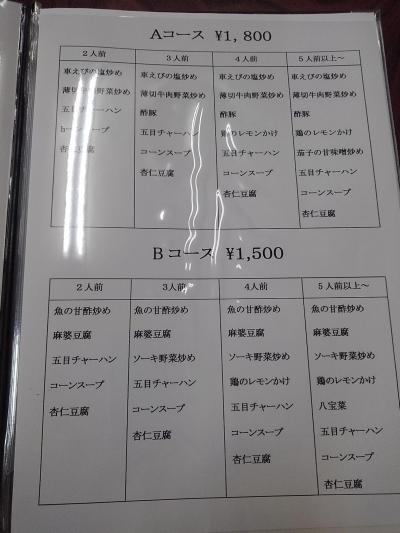 Aコース ¥1,800
２人前 ３人前 ４人前 ５人前以上～
車えびの塩炒め 車えびの塩炒め 車えびの塩炒め 車えびの塩炒め
薄切牛肉野菜炒め 薄切牛肉野菜炒め 薄切牛肉野菜炒め 薄切牛肉野菜炒め
五目チャーハン 酢豚 酢豚 酢豚
コーンスープ 五目チャーハン 鶏のレモンかけ 鶏のレモンかけ
杏仁豆腐 コーンスープ 五目チャーハン 茄子の甘味噌炒め
杏仁豆腐 コーンスープ 五目チャーハン
杏仁豆腐 コーンスープ
杏仁豆腐
Bコース ¥1,500
２人前 ３人前 ４人前 ５人前以上～
魚の甘酢炒め 魚の甘酢炒め 魚の甘酢炒め 魚の甘酢炒め
麻婆豆腐 麻婆豆腐 麻婆豆腐 麻婆豆腐
五目チャーハン ソーキ野菜炒め ソーキ野菜炒め ソーキ野菜炒め
コーンスープ 五目チャーハン 鶏のレモンかけ 鶏のレモンかけ
杏仁豆腐 コーンスープ 五目チャーハン 八宝菜
杏仁豆腐 コーンスープ 五目チャーハン
杏仁豆腐 コーンスープ
杏仁豆腐